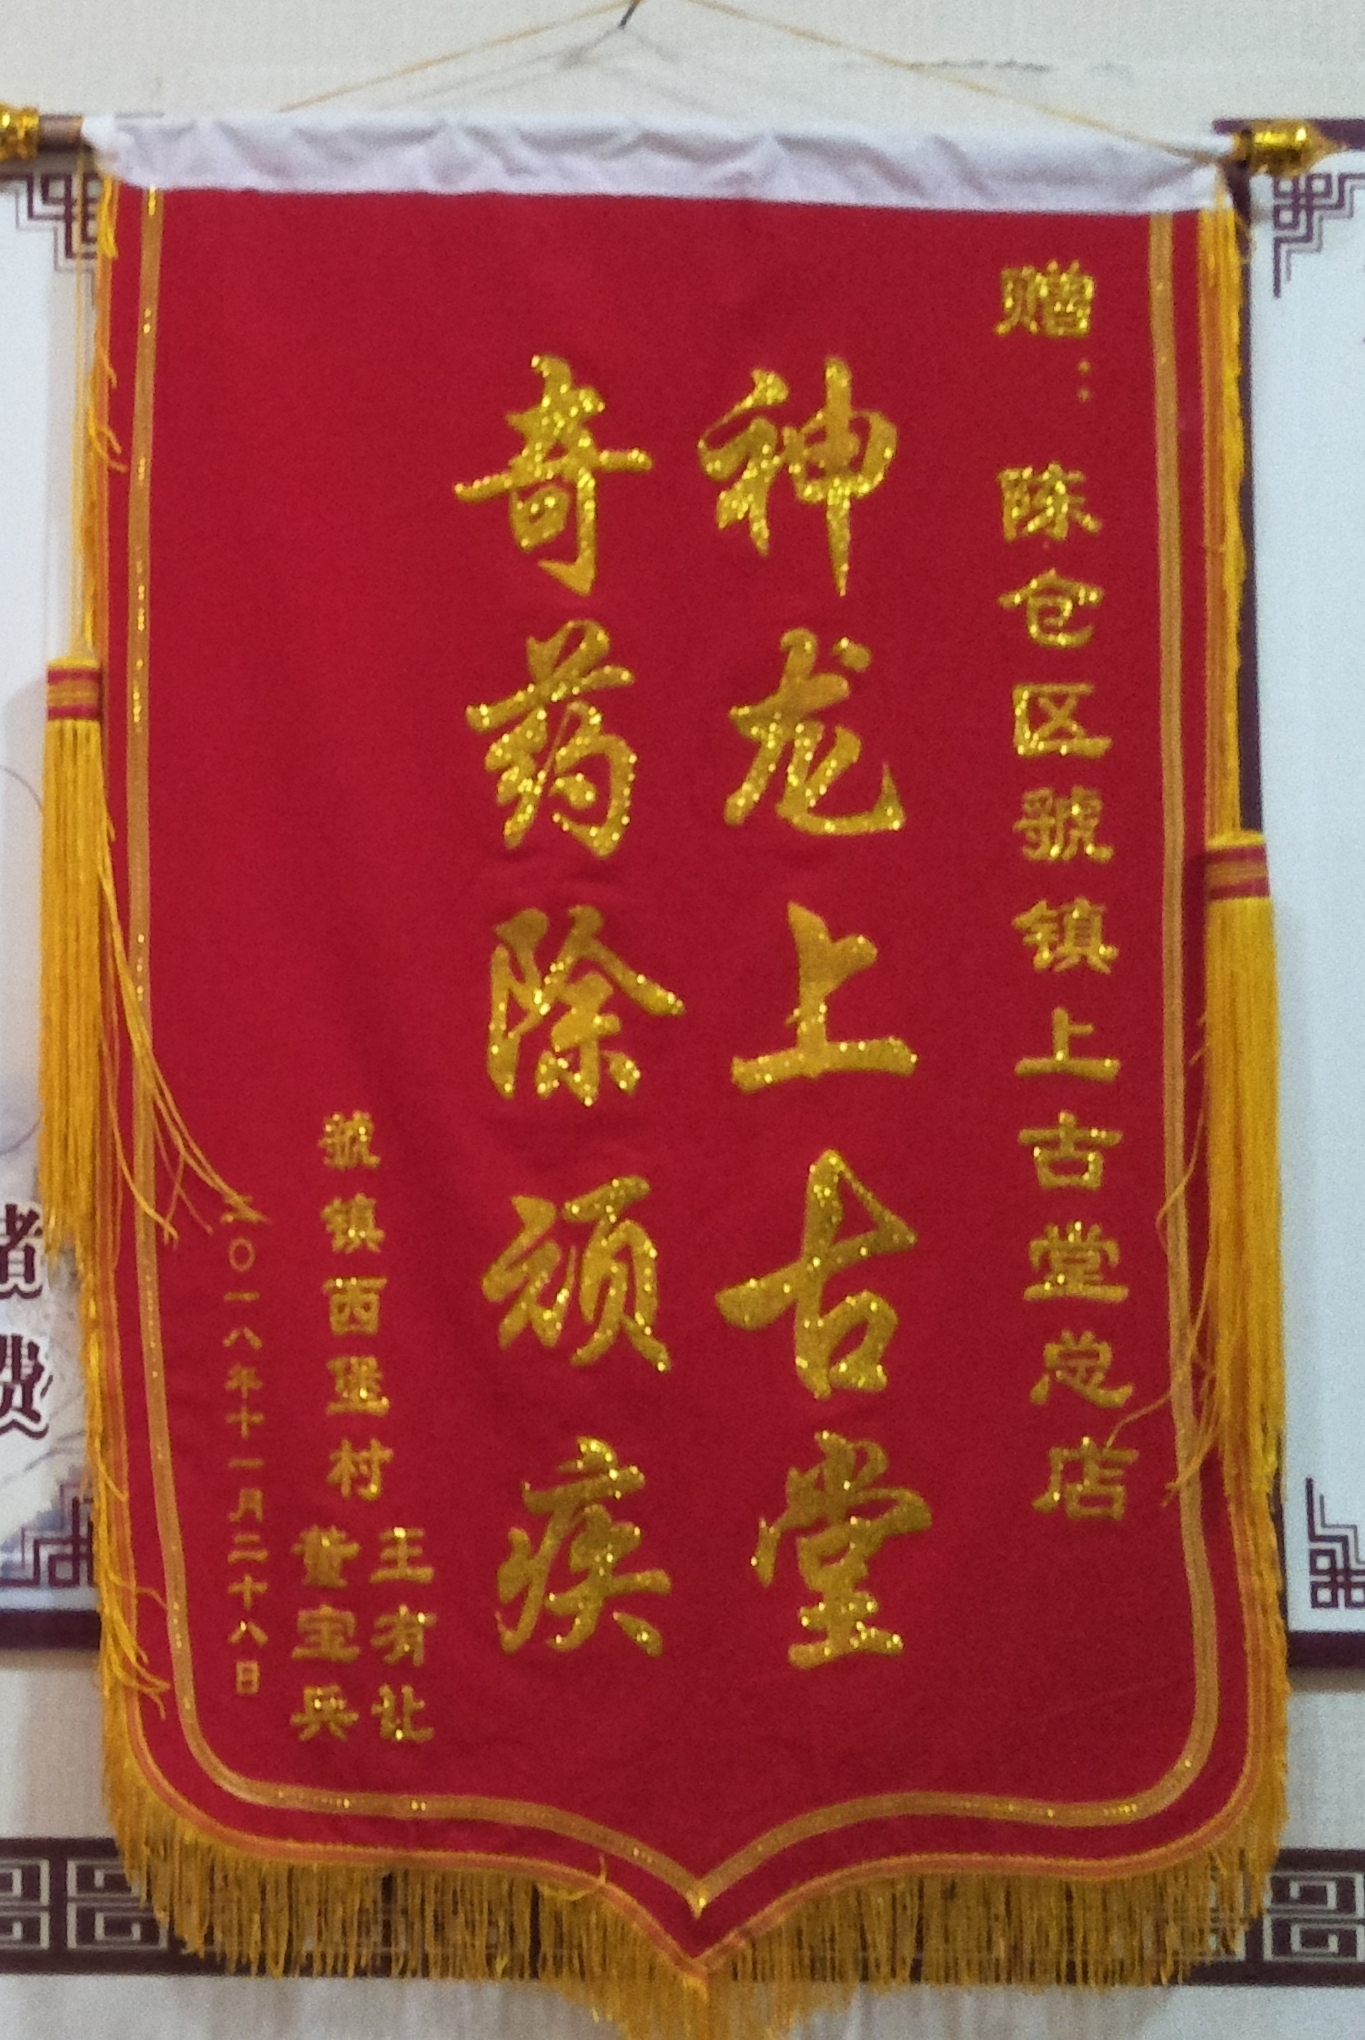 赠：陈仓区號镇上古堂总店
神龙上古堂
奇药除顽疾
號镇西堡村
王有让
董宝兵
二〇一八年十一月二十八日
费